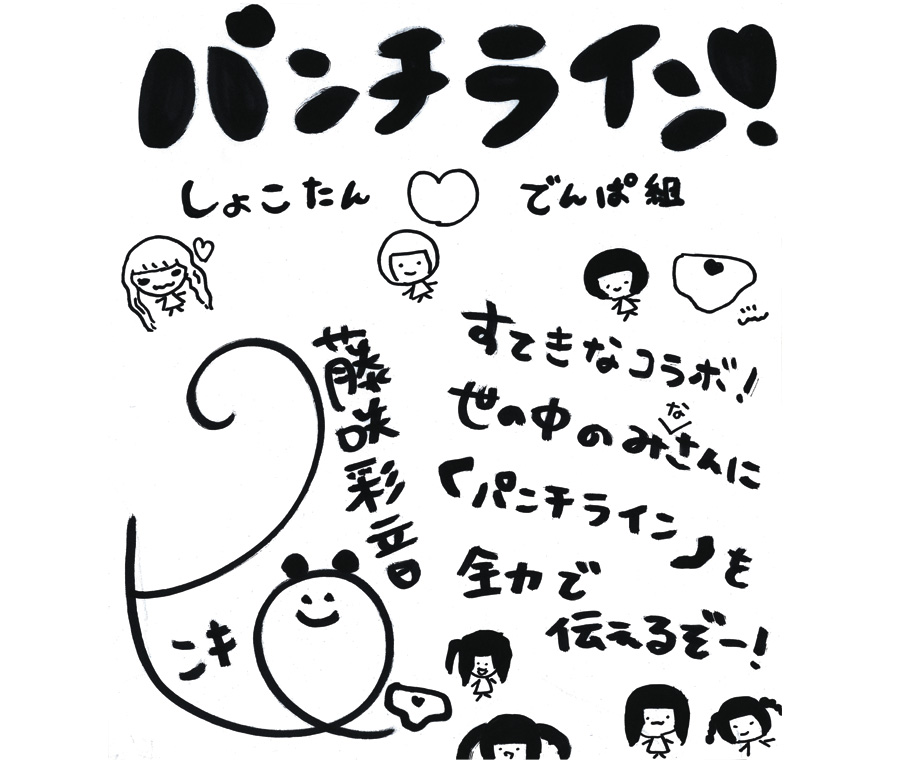 パンチライン!
しょこたん ♡ でんぱ組
藤咲彩音
すてきなコラボ!
世の中のみなさんに
『パンチライン』を
全力で
伝えるぞー!